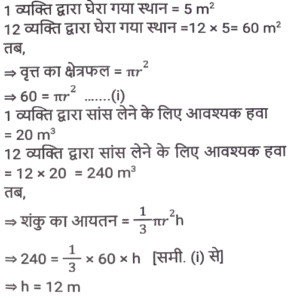 1 व्यक्ति द्वारा घेरा गया स्थान = 5 m²
12 व्यक्ति द्वारा घेरा गया स्थान =12 × 5= 60 m²
तब,
⇒ वृत्त का क्षेत्रफल = πr²
⇒ 60 = πr² .......(i)
1 व्यक्ति द्वारा सांस लेने के लिए आवश्यक हवा
= 20 m³
12 व्यक्ति द्वारा सांस लेने के लिए आवश्यक हवा
= 12 × 20 = 240 m³
तब,
⇒ शंकु का आयतन = 1/3 πr²h
⇒ 240 = 1/3 × 60 × h [समी. (i) से]
⇒ h = 12 m